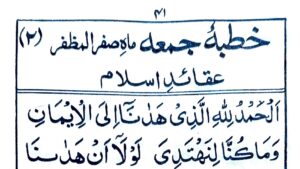 ۴۱
خطبۂ جمعہ ماہ صفر المظفر (۲)
عقائدِ اسلام
اَلْحَمْدُ لِلّٰهِ الَّذِیْ هَدٰىنَآ اِلَی الْاِیْمَانِ
وَمَا كُنَّا لِنَهْتَدِیَ لَوْلَآ اَنْ هَدٰىنَا